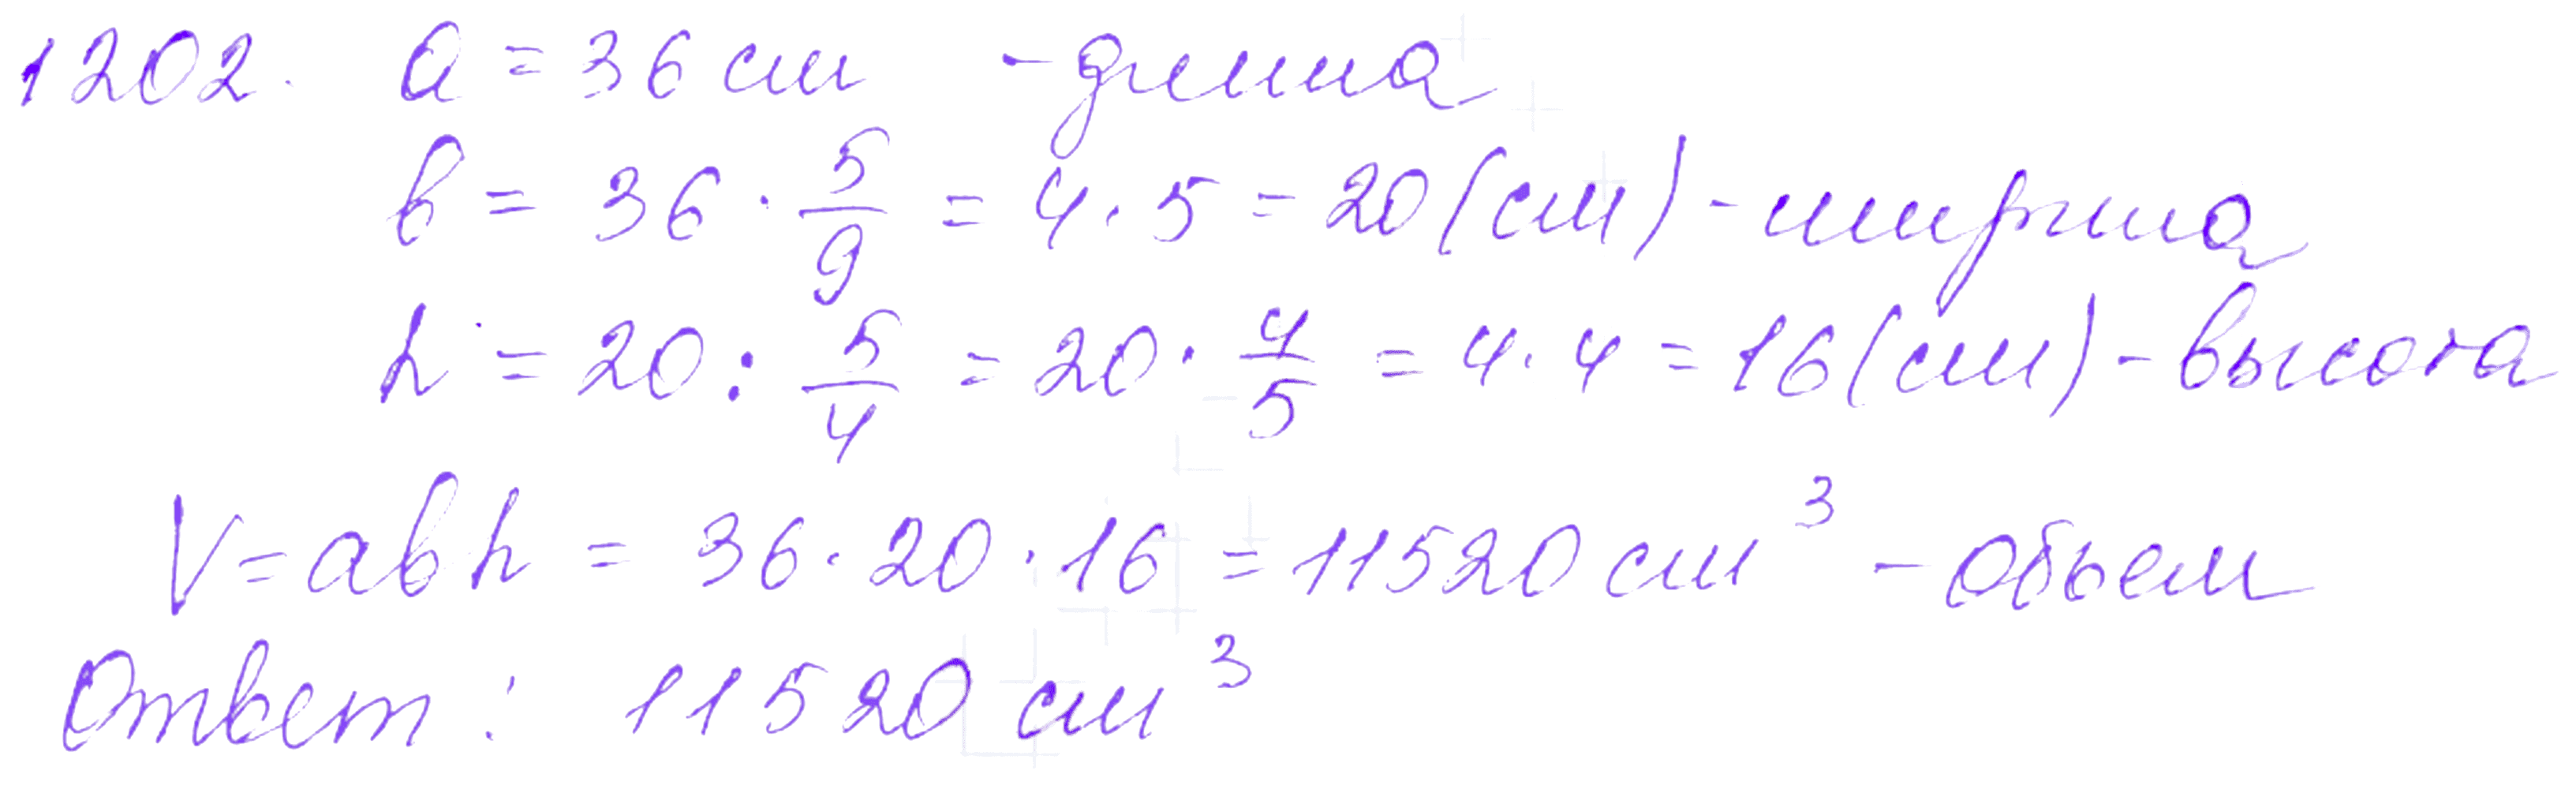 1202. a = 36 см - длина
b = 36 · 5/9 = 4 · 5 = 20 (см) - ширина
h = 20 : 5/4 = 20 · 4/5 = 4 · 4 = 16 (см) - высота
V = abh = 36 · 20 · 16 = 11520 см³ - объем
Ответ: 11520 см³